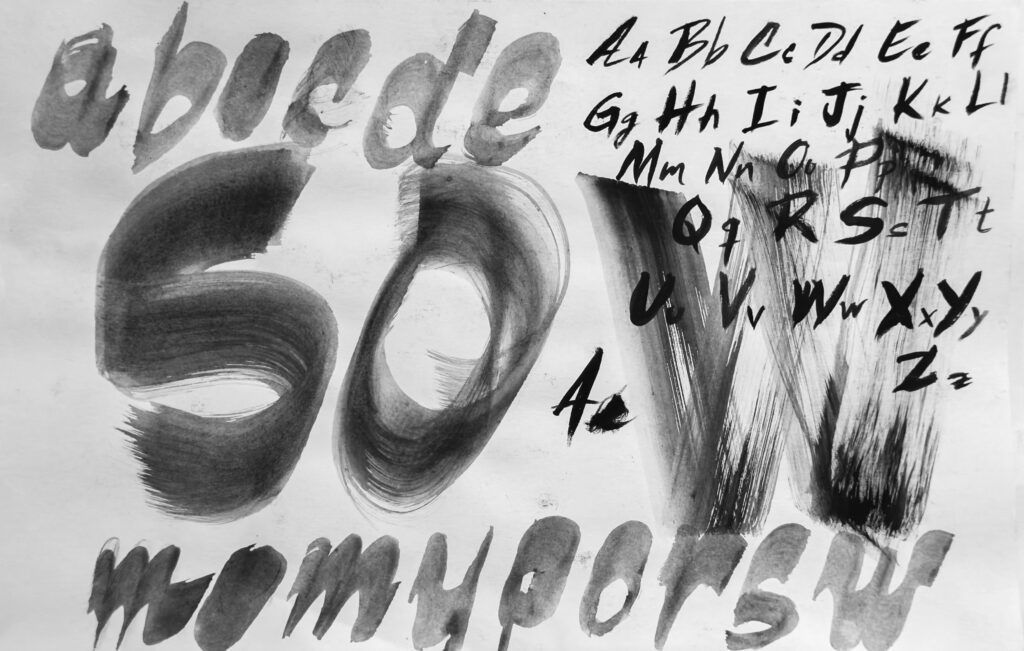 abocde
Aa Bb Cc Dd Ee Ff
Gg Hh Ii Jj Kk Ll
Mm Nn Oo Pp
Qq R Sc Tt
SOW
Uu Vv Ww Xx Yy
Zz
A
momyporsw